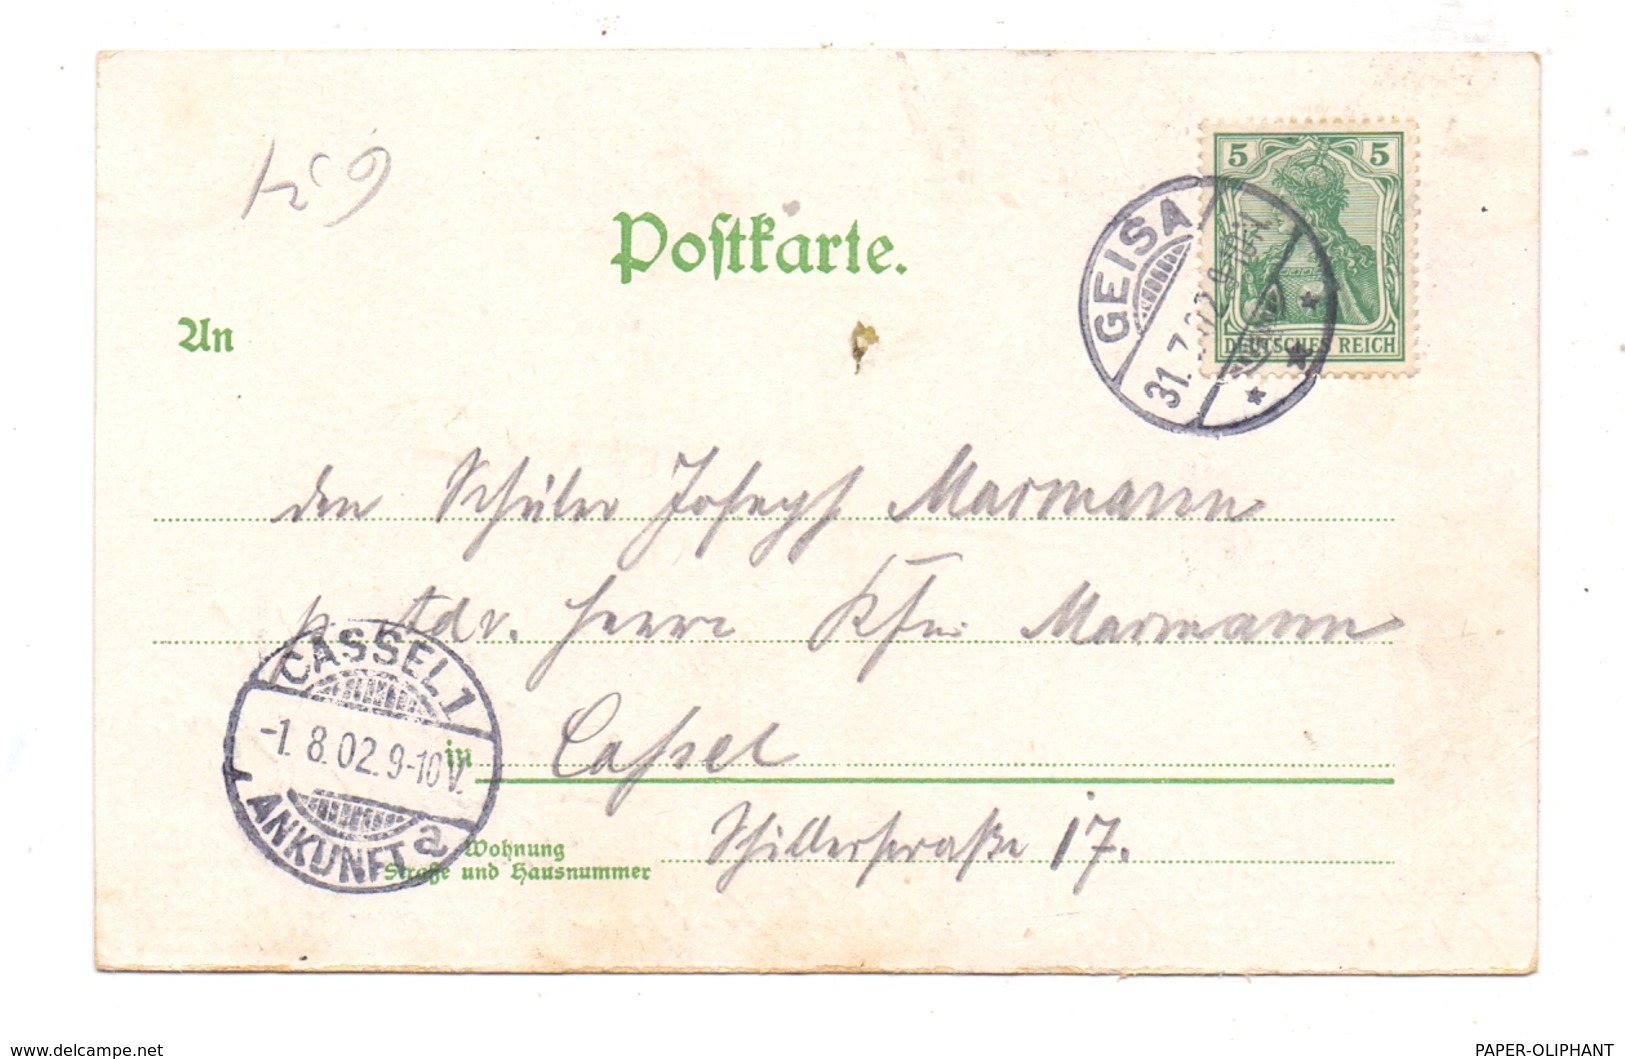 5 5
DEUTSCHES REICH
GEISA
31.7.02 9-10V.
Postkarte.
An
den Schüler Joseph Marmann
p. Adr. Herrn Kfm. Marmann
in Cassel
Wohnung
Straße und Hausnummer
Schillerstraße 17.
CASSEL 1
-1.8.02.9-10V.
ANKUNFT a
www.delcampe.net
PAPER-OLIPHANT